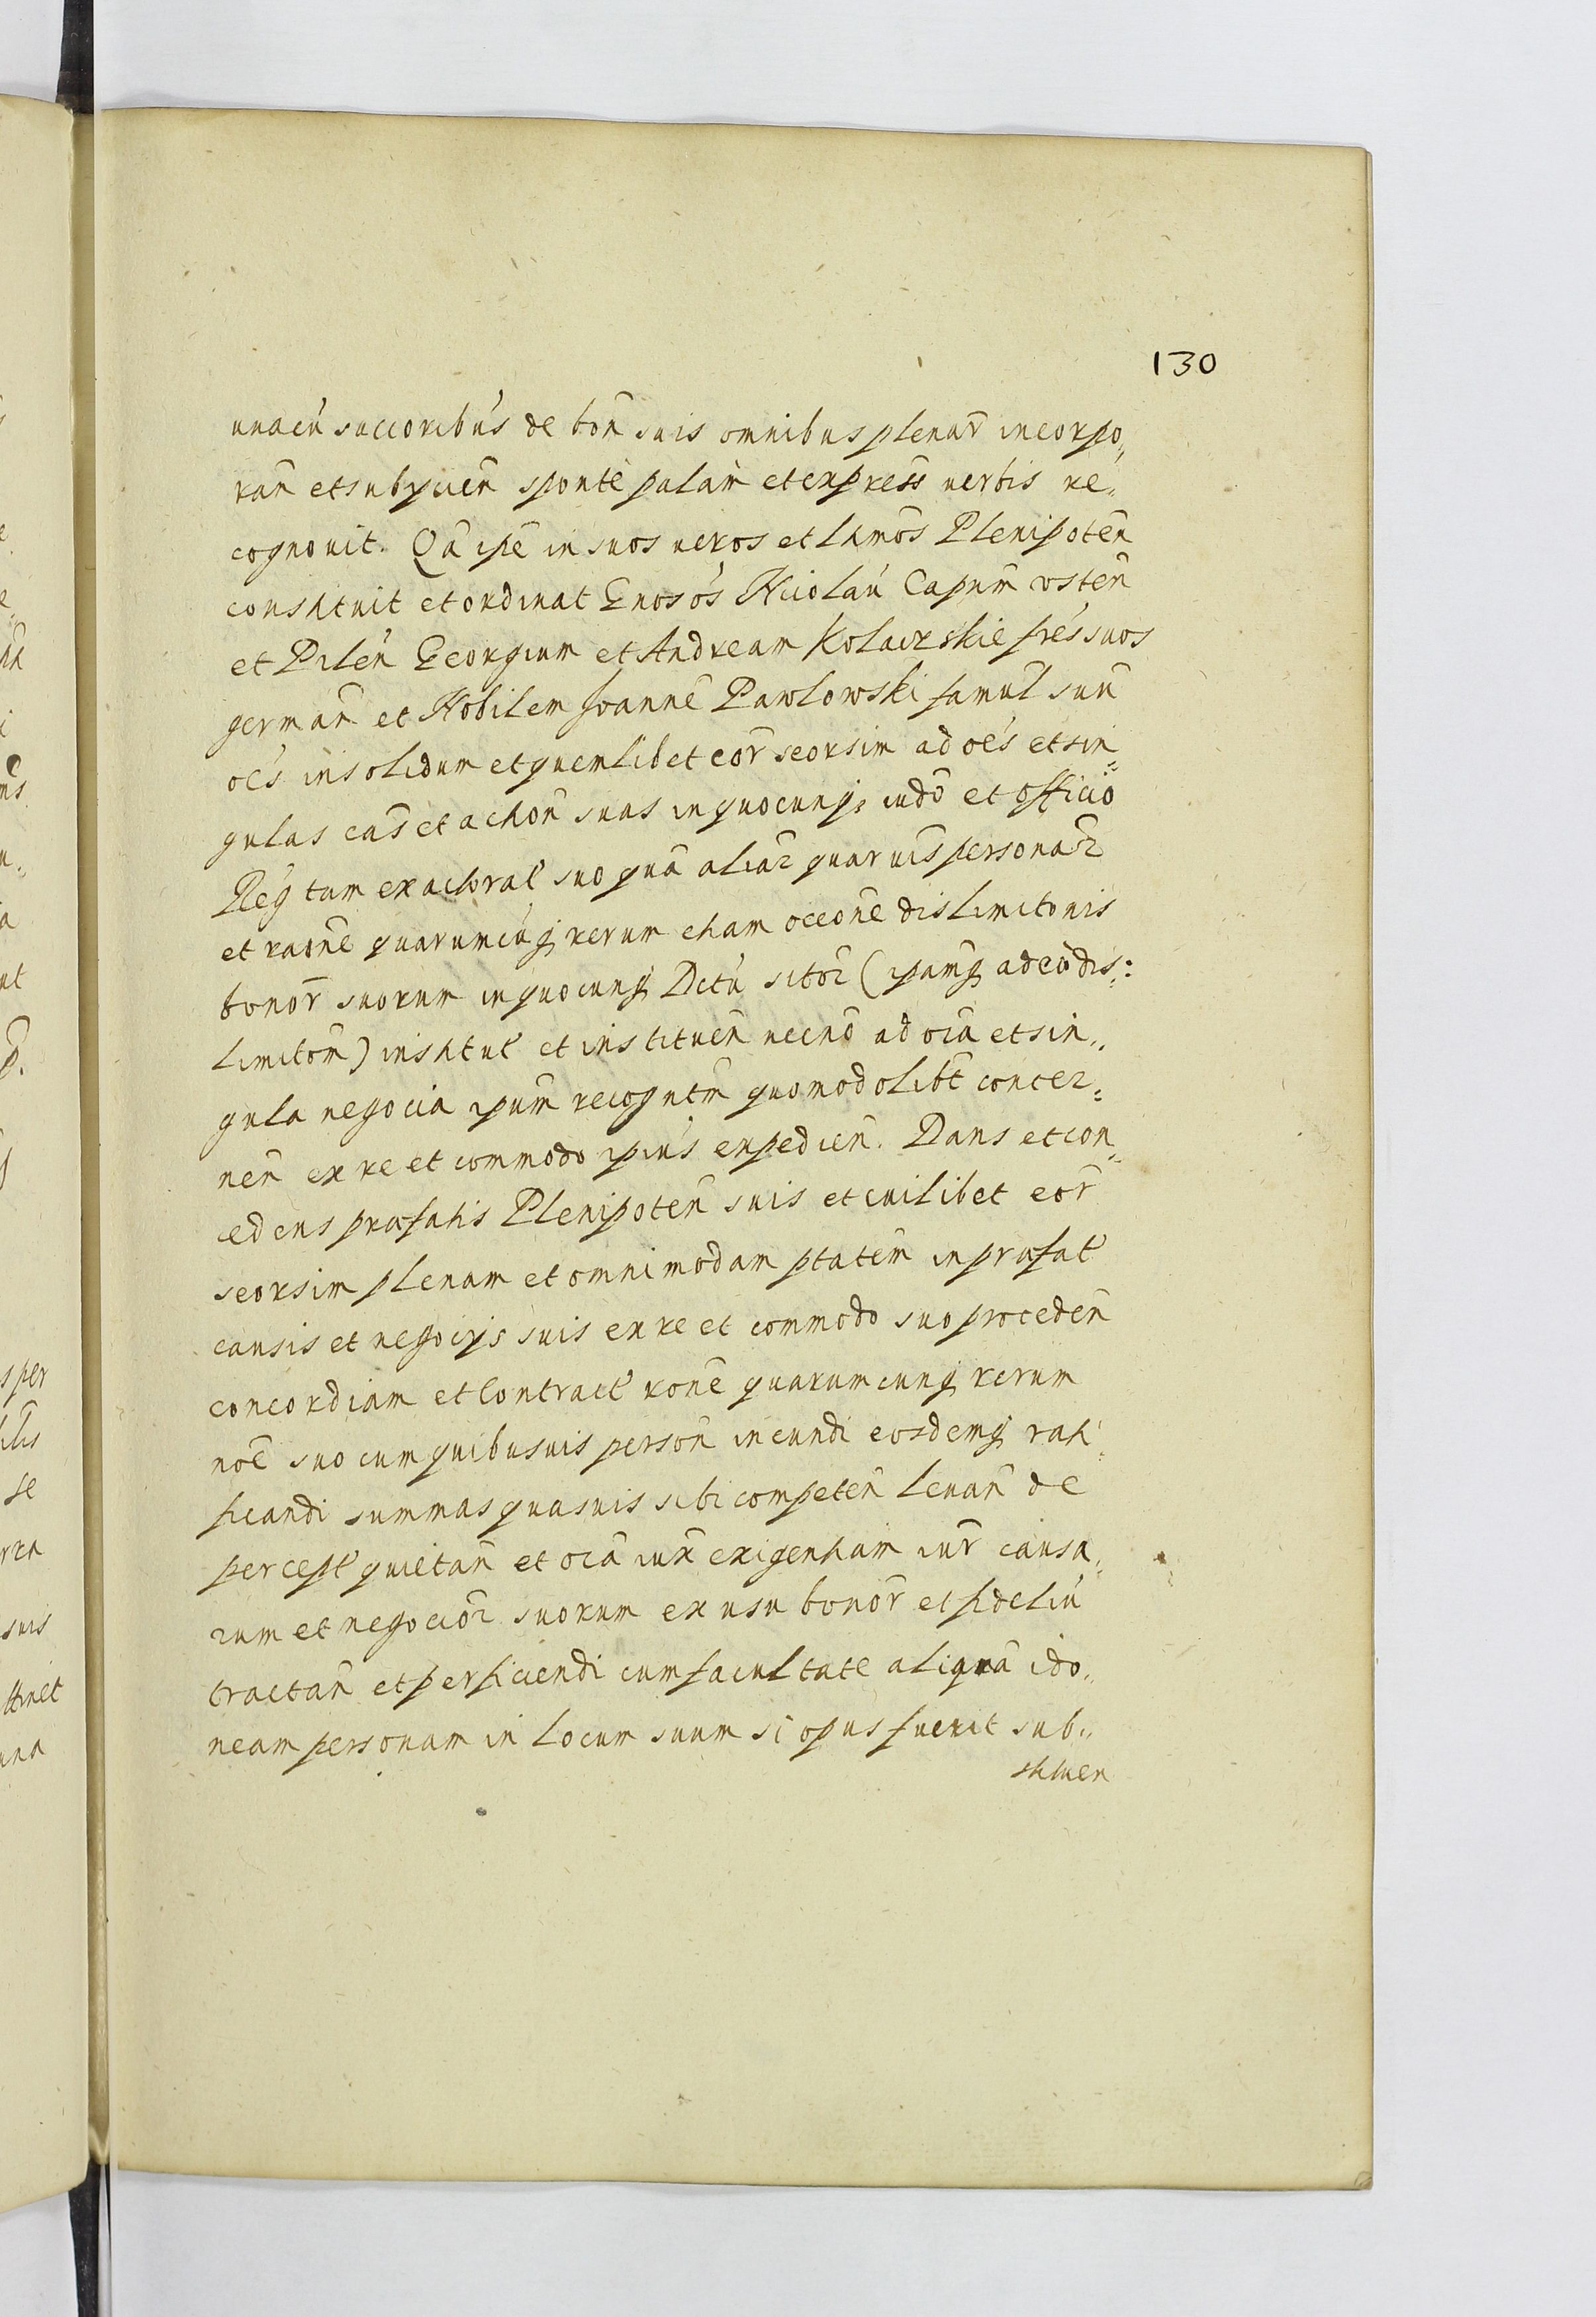 130
unacũ succoribus de bon̄ suis omnibus plenar̄ incorpo„
ran̄ et subijcien̄ sponte palam et express uerbis re„
cognouit. Qã ipē in suos ueros et Ltmōs Plenipoten̄
constituit et ordinat Gnosos Nicolaū Capnm̄ osten̄
et Pilen̄ Georgium et Andream Kolaczskie frēs suos
german̄ et Nobilem Joannē Pawlowski famul̄ suū
oēs insolidum et quemlibet eor̄ seorsim ad oēs et sin„
gulas caās et action̄ suas in quocunq; iudō et officio
Reg tam ex actorat̄ suo quā aliar̄ quaruis personar̄
et raōne quarumcũq; rerum etiam occōne dislimitonis
bonor̄ suorum in quocunq; Dctū sitor̄ (ipamq; ad eā dis„
limitōn) institut̄ et instituen̄ necnō ad oīa et sin„
gula negocia ipum̄ recognm̄ quomodolibt̄ concer„
nen̄ ex re et commodo ipius expedien̄. Dans et con„
cedens præfatis Plenipoten̄ suis et cuilibet eor̄
seorsim plenam et omnimodam ptatem̄ in præfat̄
causis et negocijs suis ex re et commodo suo proceden̄
concordiam et Contract̄ rōne quarumcunq; rerum
noē suo cum quibusuis person̄ ineundi eosdemq; rati„
ficandi summas quasuis sibi competen̄ leuan̄ de
percept̄ quietan̄ et oīa iux̄ exigentiam iur̄ causa„
rum et negocior̄ suorum ex usu bonor̄ et fideliū
tractan̄ et perficiendi cum facultate aliquā ido„
neam personam in locum suum si opus fuerit sub„
stituen